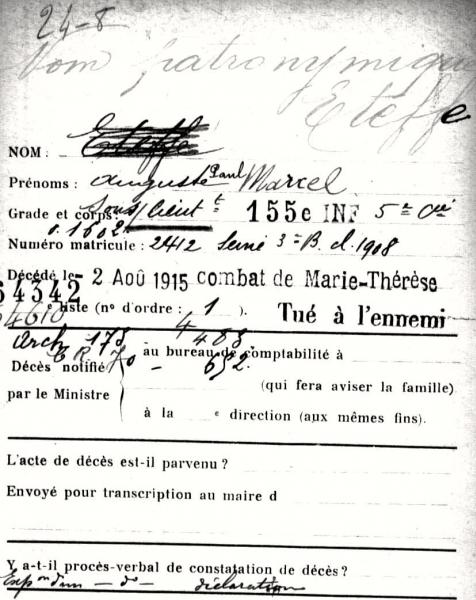 24-8
Nom patronymique
Eteffe
NOM :
Prénoms : Auguste Paul Marcel
Grade et corps : Sous/Lieutt 155e INF 5e Cie
o. 1602
Numéro matricule : 2412 Seine 3e B. cl. 1908
Décédé le 2 Aoû 1915 combat de Marie-Thérèse
64342
e liste (n° d'ordre : 1 ). Tué à l'ennemi
4 483
Arch 178
Décès notifié au bureau de comptabilité à
652
par le Ministre (qui fera aviser la famille)
à la e direction (aux mêmes fins).
L'acte de décès est-il parvenu ?
Envoyé pour transcription au maire d
Y a-t-il procès-verbal de constatation de décès ?
Expon d'un — do — déclaration